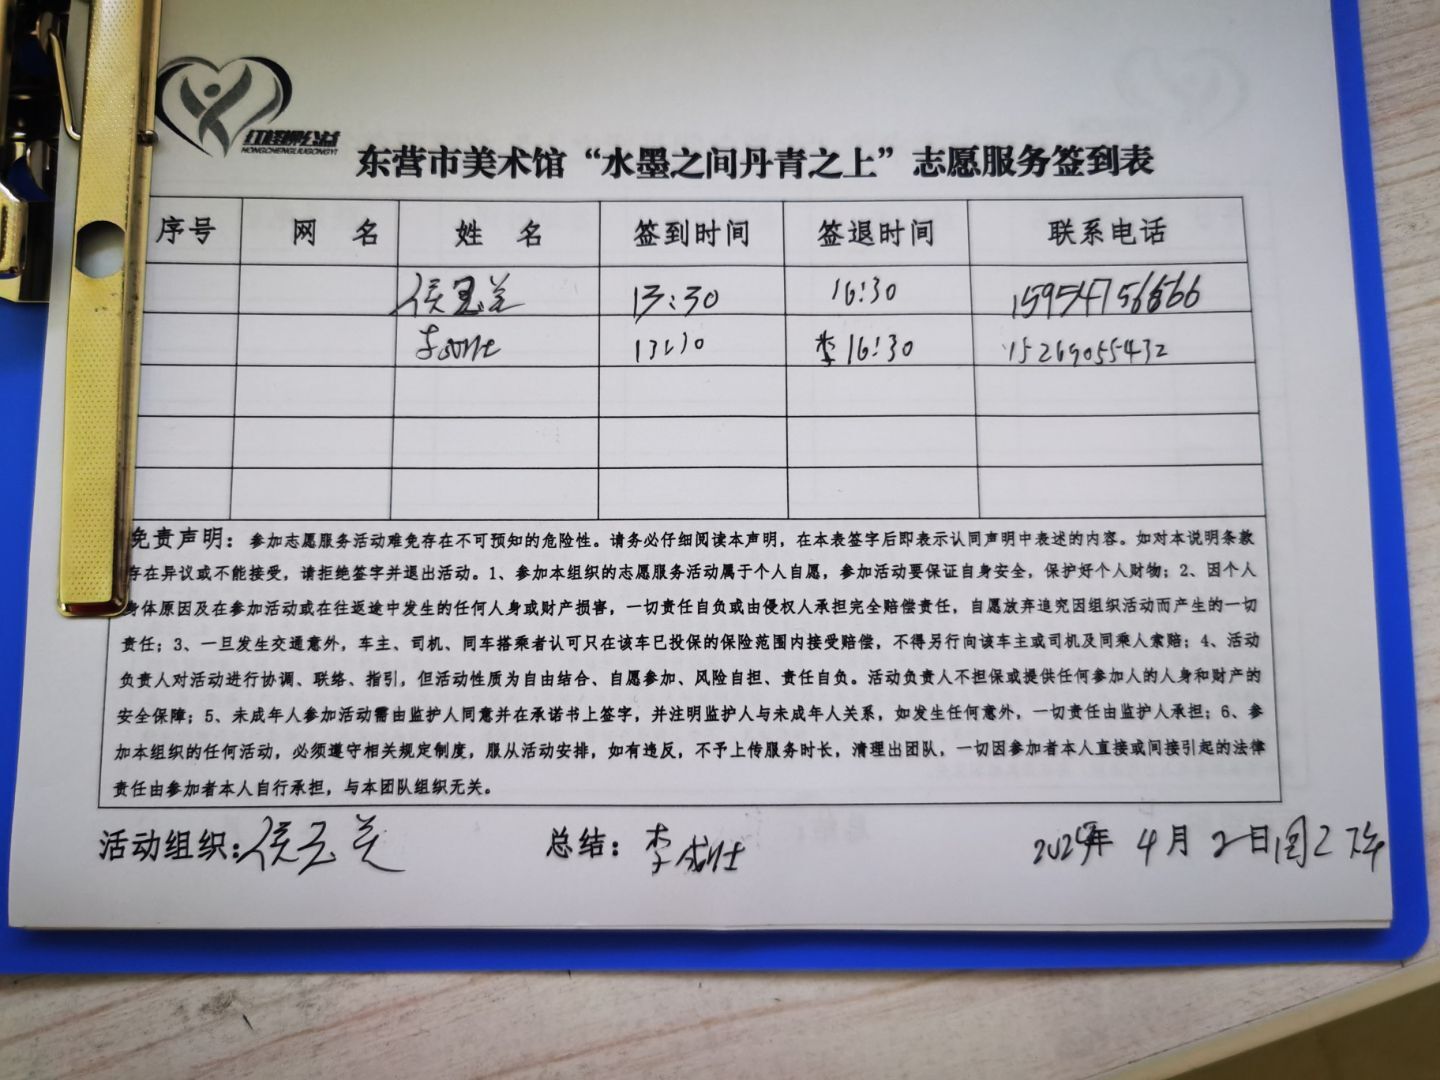 红橙柳公益
HONGCHENGLIUGONGYI
东营市美术馆“水墨之间丹青之上”志愿服务签到表
序号 网 名 姓 名 签到时间 签退时间 联系电话
侯玉兰 13:30 16:30 15954756666
李成仕 13:30 李16:30 15269055432
免责声明：参加志愿服务活动难免存在不可预知的危险性。请务必仔细阅读本声明，在本表签字后即表示认同声明中表述的内容。如对本说明条款
存在异议或不能接受，请拒绝签字并退出活动。1、参加本组织的志愿服务活动属于个人自愿，参加活动要保证自身安全，保护好个人财物；2、因个人
身体原因及在参加活动或在往返途中发生的任何人身或财产损害，一切责任自负或由侵权人承担完全赔偿责任，自愿放弃追究因组织活动而产生的一切
责任；3、一旦发生交通意外，车主、司机、同车搭乘者认可只在该车已投保的保险范围内接受赔偿，不得另行向该车主或司机及同乘人索赔；4、活动
负责人对活动进行协调、联络、指引，但活动性质为自由结合、自愿参加、风险自担、责任自负。活动负责人不担保或提供任何参加人的人身和财产的
安全保障；5、未成年人参加活动需由监护人同意并在承诺书上签字，并注明监护人与未成年人关系，如发生任何意外，一切责任由监护人承担；6、参
加本组织的任何活动，必须遵守相关规定制度，服从活动安排，如有违反，不予上传服务时长，清理出团队，一切因参加者本人直接或间接引起的法律
责任由参加者本人自行承担，与本团队组织无关。
活动组织：侯玉兰 总结：李成仕 2024年 4月 2日周二下午